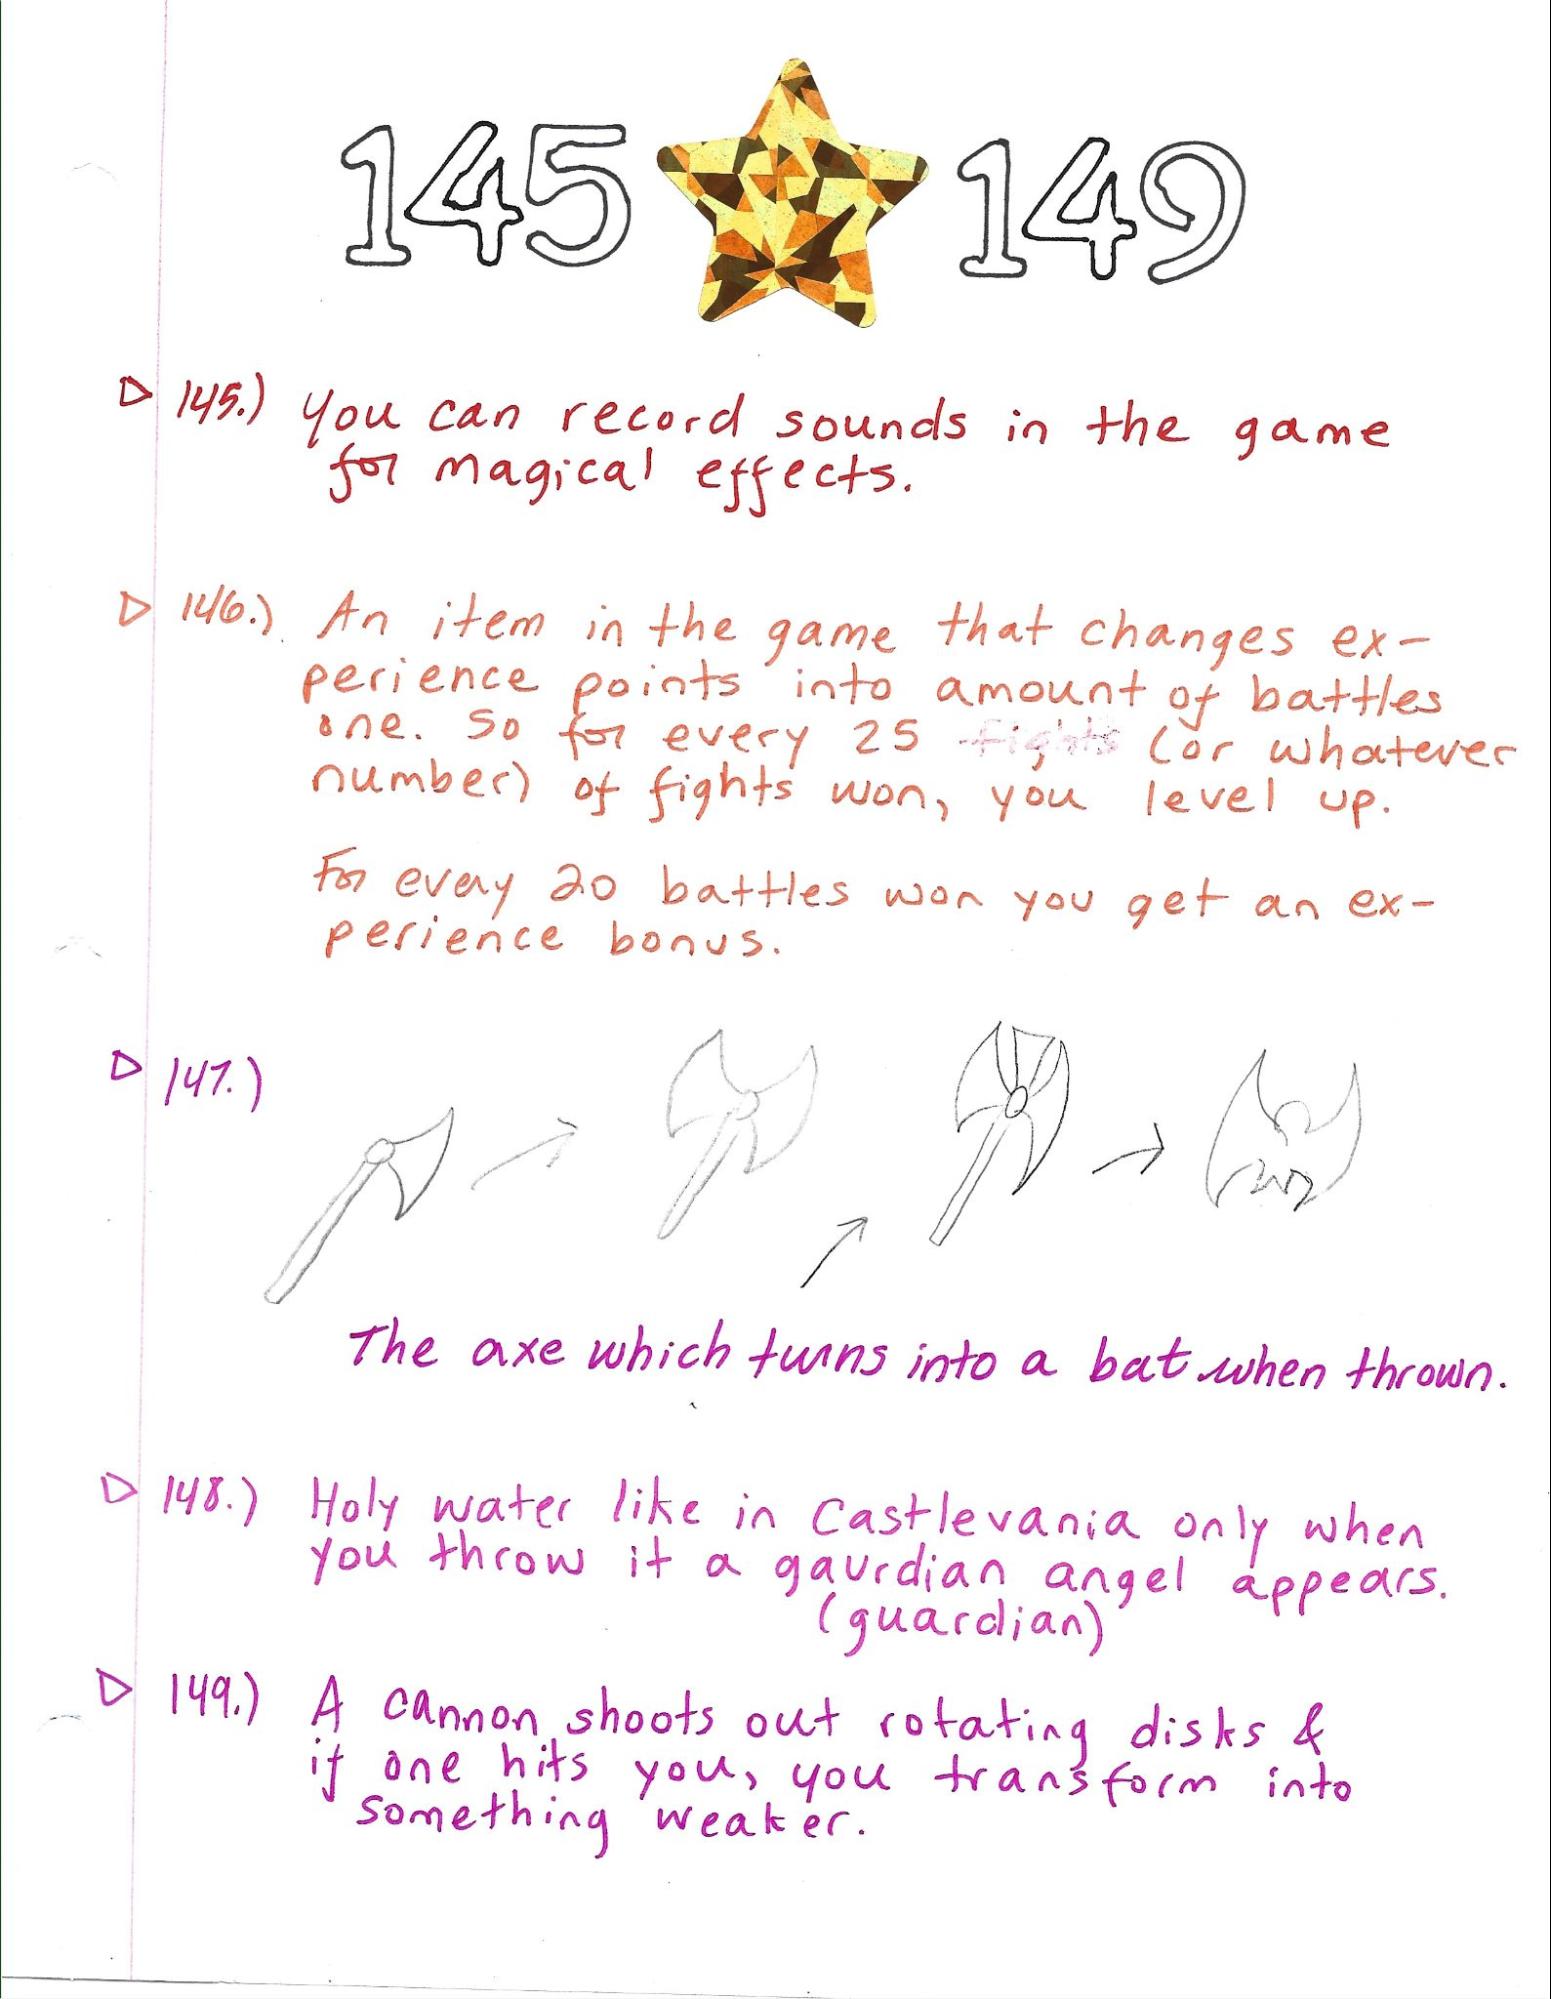 145 149
145.) You can record sounds in the game
for magical effects.
146.) An item in the game that changes ex-
perience points into amount of battles
one. So for every 25 fights (or whatever
number) of fights won, you level up.
For every 20 battles won you get an ex-
perience bonus.
147.)
The axe which turns into a bat when thrown.
148.) Holy water like in Castlevania only when
you throw it a gaurdian angel appears.
(guardian)
149.) A cannon shoots out rotating disks &
if one hits you, you transform into
something weaker.